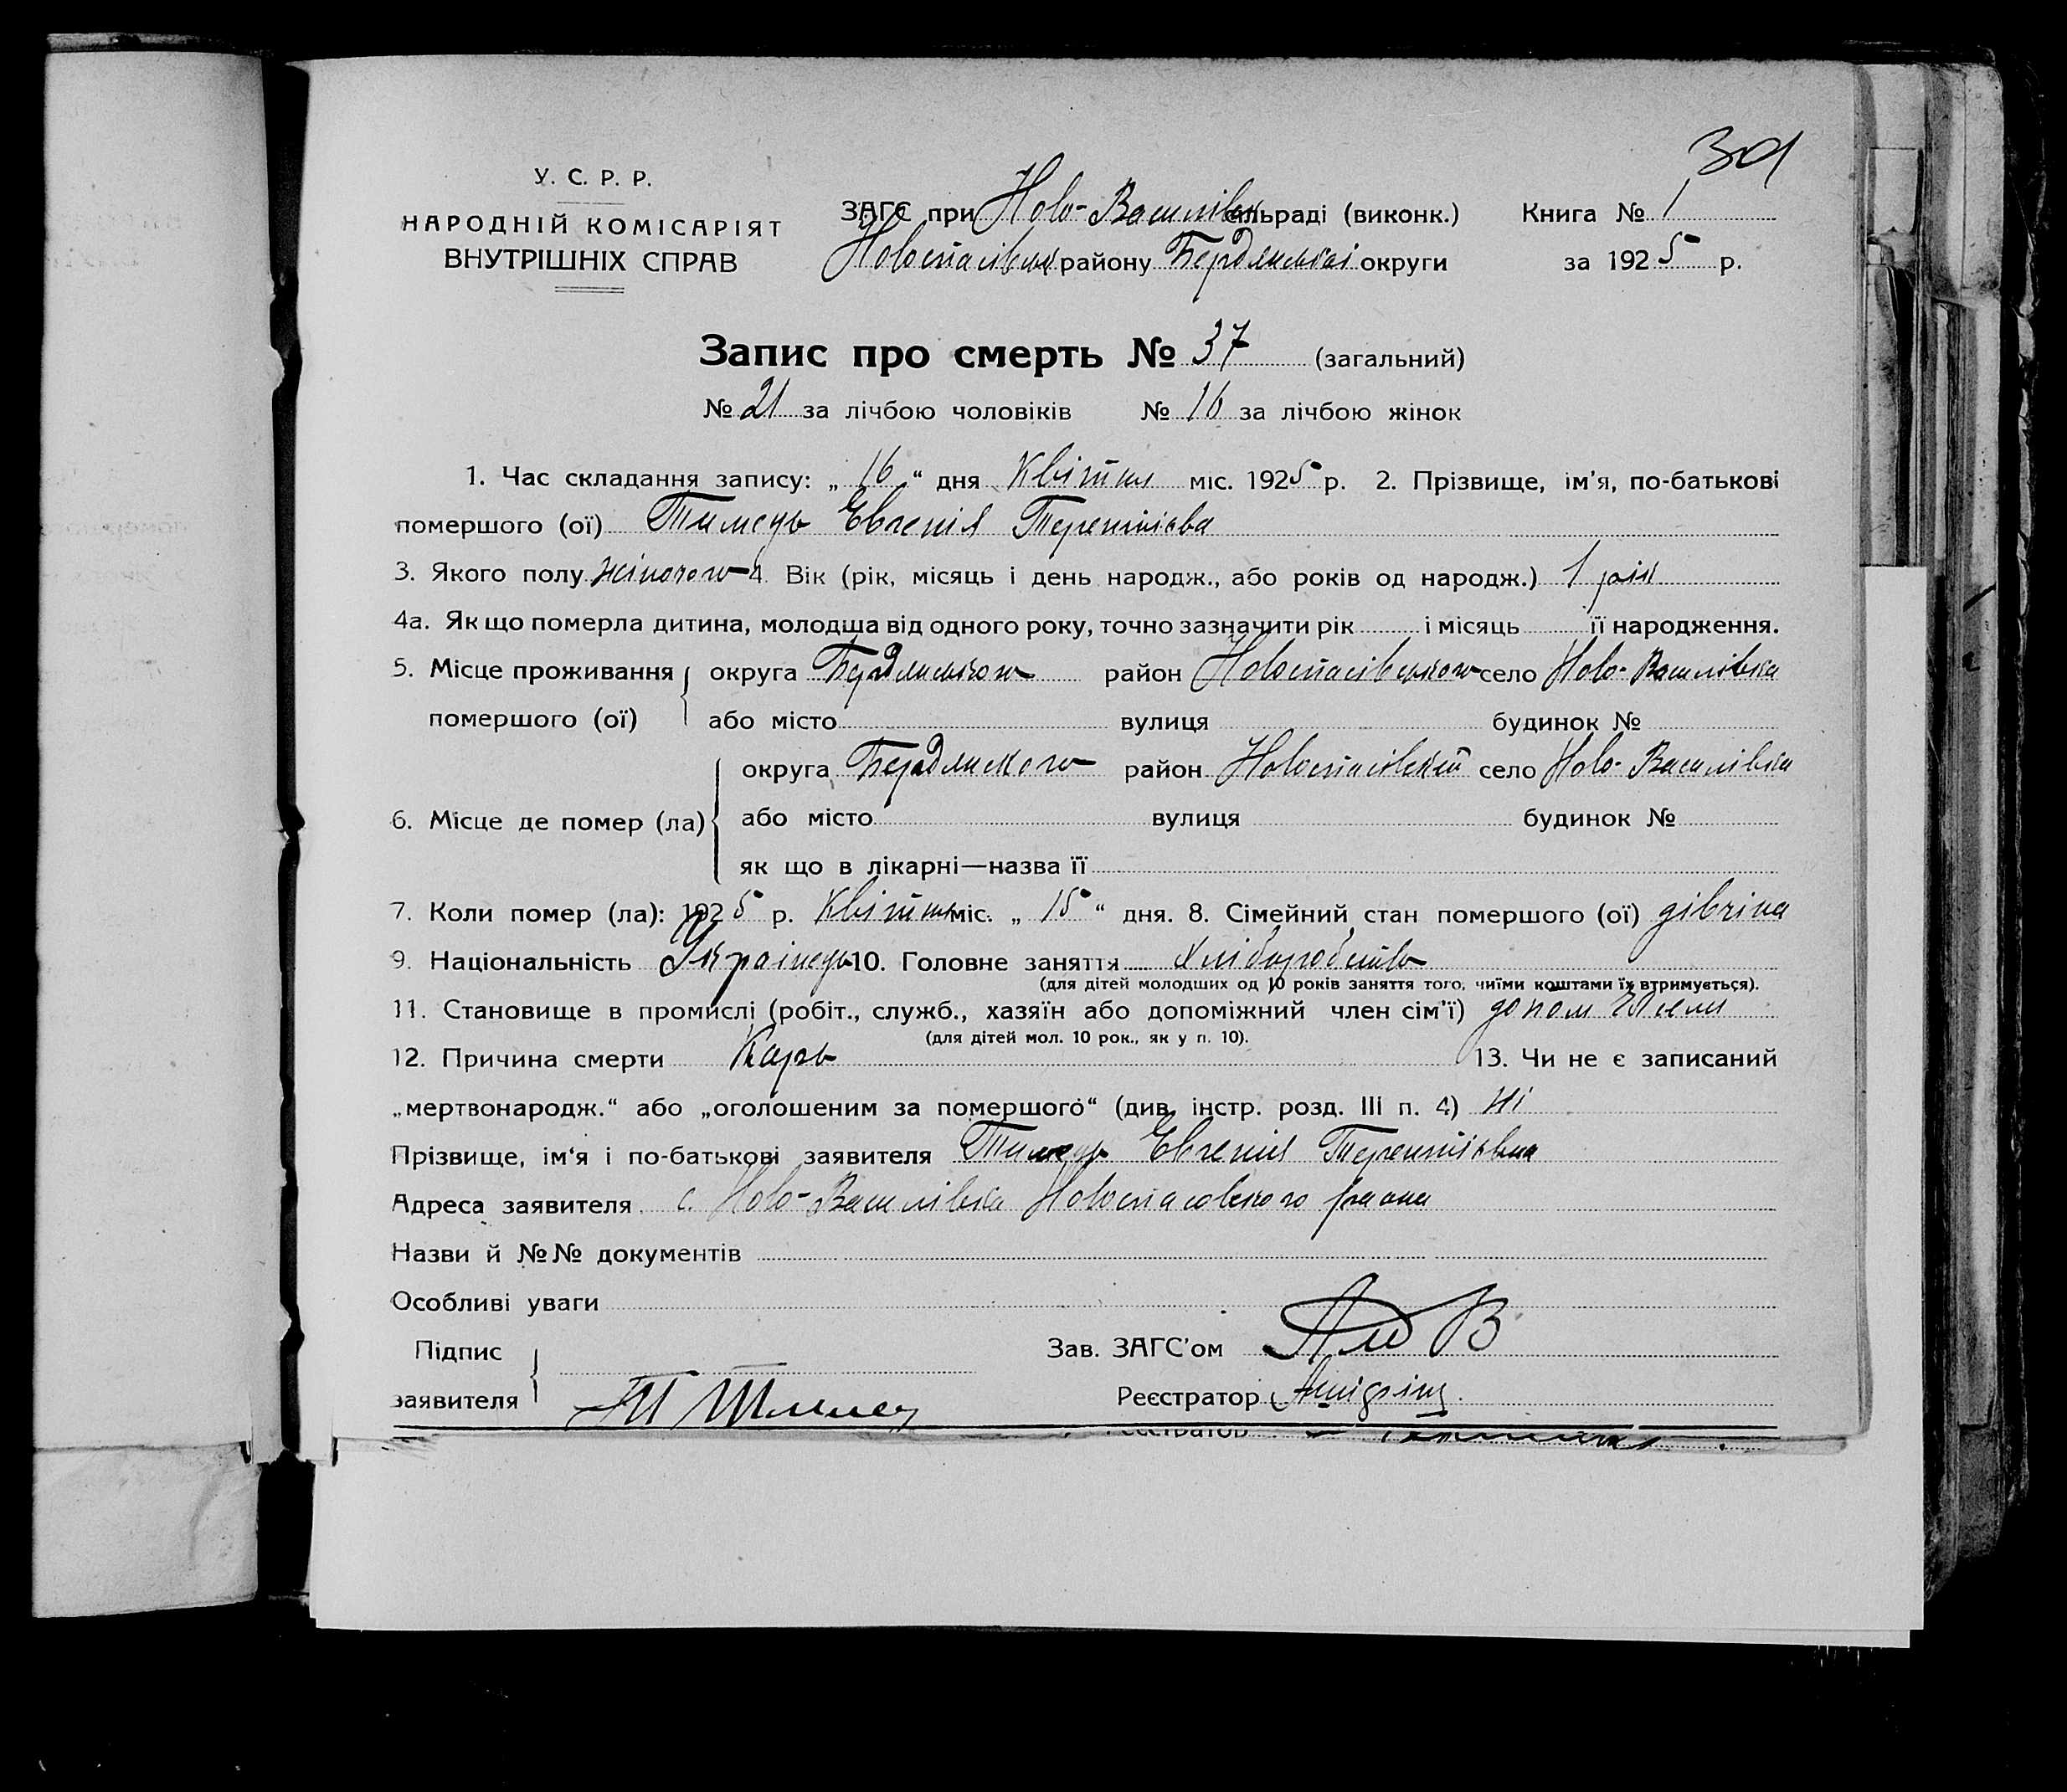 301
У. С. Р. Р.
НАРОДНІЙ КОМІСАРІЯТ
ВНУТРІШНІХ СПРАВ
ЗАГС при Ново-Василівск сільраді (виконк.) Книга № 1
Новоспасівськ району Бердянської округи за 1925 р.
Запис про смерть № 37 (загальний)
№ 21 за лічбою чоловіків № 16 за лічбою жінок
1. Час складання запису: „ 16 “ дня Квітня міс. 1925 р. 2. Прізвище, ім'я, по-батькові
помершого (ої) Тимець Евгенія Терентієва
3. Якого полу жіночого 4. Вік (рік, місяць і день народж., або років од народж.) 1 рік
4а. Як що померла дитина, молодша від одного року, точно зазначити рік і місяць її народження.
5. Місце проживання округа Бердянського район Новоспасівського село Ново-Василівка
помершого (ої) або місто вулиця будинок №
округа Бердянского район Новоспасівский село Ново-Василівка
6. Місце де помер (ла) або місто вулиця будинок №
як що в лікарні—назва її
7. Коли помер (ла): 1925 р. Квітня міс. „ 15 “ дня. 8. Сімейний стан помершого (ої) дівчина
9. Національність Українець 10. Головне заняття хліборобство
(для дітей молодших од 10 років заняття того, чиїми коштами їх втримується).
11. Становище в промислі (робіт., служб., хазяїн або допоміжний член сім'ї) допом
(для дітей мол. 10 рок., як у п. 10).
12. Причина смерти Карь 13. Чи не є записаний
„мертвонародж.“ або „оголошеним за помершого“ (див. інстр. розд. III п. 4) Ні
Прізвище, ім'я і по-батькові заявителя Тимець Евгенія Терентієвна
Адреса заявителя с. Ново-Василівка Новоспасовского раена
Назви й №№ документів
Особливі уваги
Підпис Зав. ЗАГС'ом
заявителя Реєстратор
Реєстратор